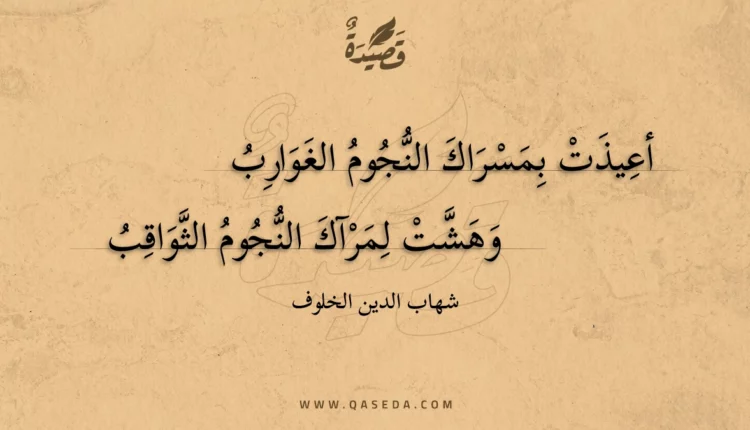 قَصِيْدَةٌ
أعِيذَتْ بِمَسْرَاكَ النُّجُومُ الغَوَارِبُ
وَهَشَّتْ لِمَرْآكَ النُّجُومُ الثَّوَاقِبُ
شهاب الدين الخلوف
WWW.QASEDA.COM